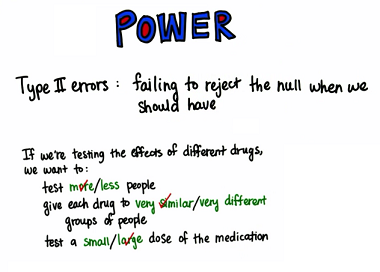 POWER
Type II errors: failing to reject the null when we
should have
If we're testing the effects of different drugs,
we want to:
test more/less people
give each drug to very similar/very different
groups of people
test a small/large dose of the medication